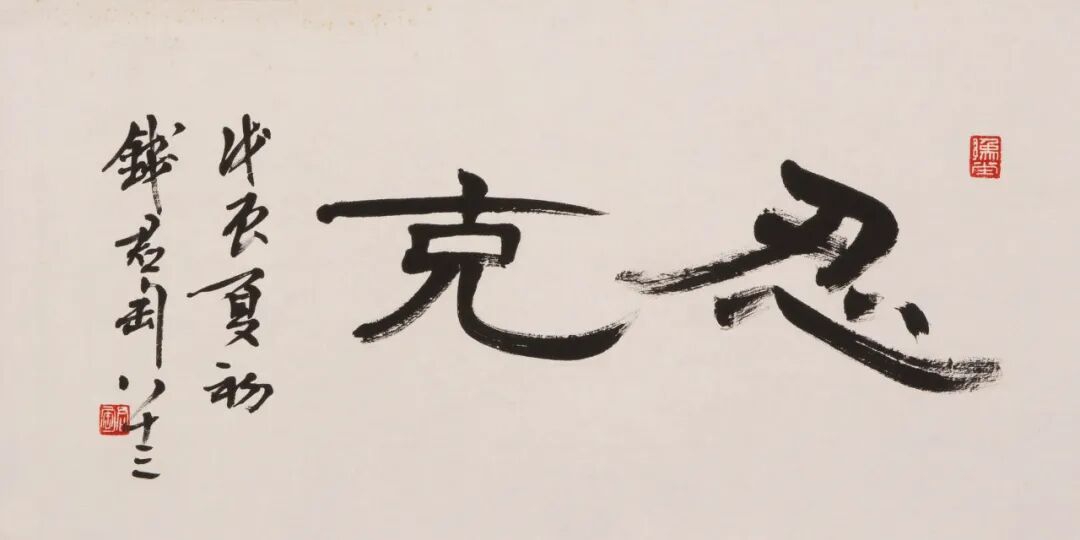 忍克
戊辰夏初
錢君匋八十三